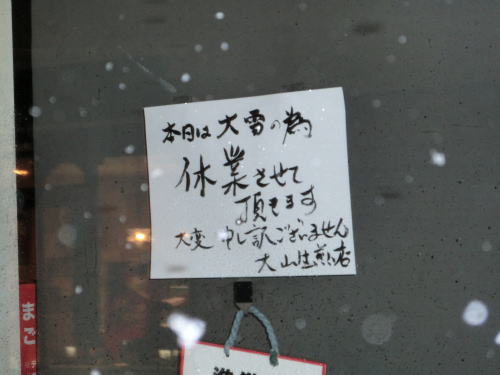 本日は大雪の為
休業させて
頂きます
大変申し訳ございません
大山生煎店
まご
準備